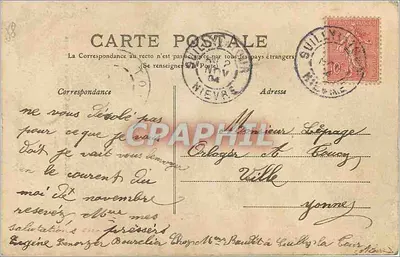 CARTE POSTALE
La Correspondance au recto n'est pas acceptée par tous les pays étrangers
Se renseigner à la Poste
SUILLY-LA-TOUR
NOV
04
NIEVRE
SUILLY-LA-TOUR
NIEVRE
Correspondance
Adresse
CPAPHIL
ne vous Désolé pas
pour ce que je vous
doit je vait vous envoyer
en le courent du
moi de novembre
resevez mes
salutations empressers
Eugène Bourrelier chez Mme Baudot à Suilly la Tour
Nièvre
Monsieur Lepage
Orloger A Toucy
Ville
Yonne